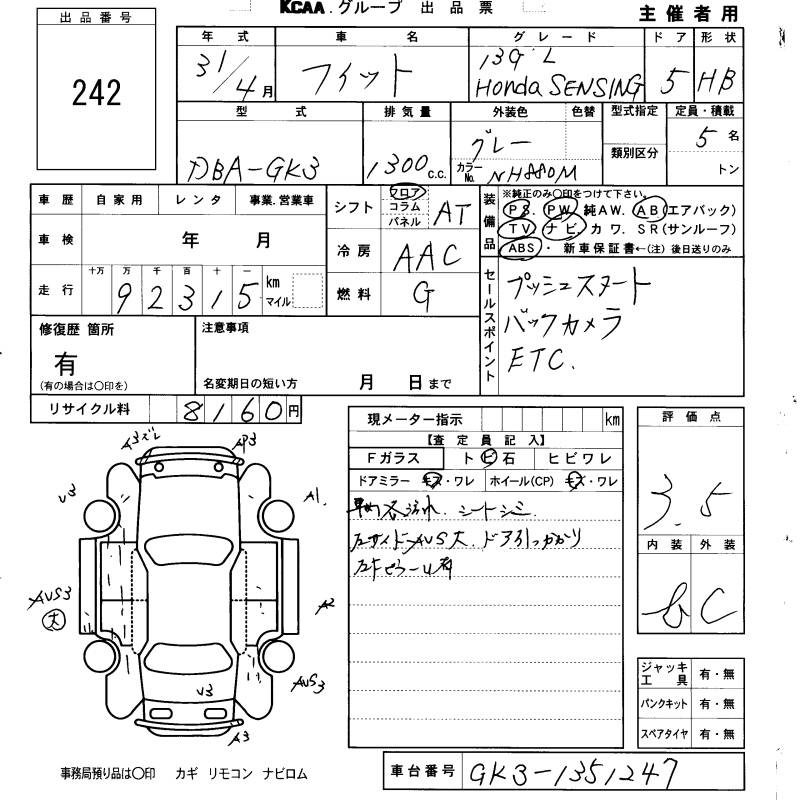 KCAA.グループ 出品票
主催者用
出品番号
242
年式 車名 グレード ドア 形状
31/4月 フィット 13G L Honda SENSING 5 HB
型式 排気量 外装色 色替 型式指定 定員・積載
DBA-GK3 1300c.c. グレー カラーNo. NH880M 類別区分 5名 トン
車歴 自家用 レンタ 事業.営業車
シフト フロア コラム パネル AT
装備品 ※純正のみ〇印をつけて下さい。
PS. PW. 純AW. AB(エアバック)
TV. ナビ. カワ. SR(サンルーフ)
ABS・ 新車保証書←(注)後日送りのみ
車検 年 月
冷房 AAC
走行 十万 万 千 百 十 一 92315 km マイル
燃料 G
セールスポイント
プッシュスタート
バックカメラ
ETC.
修復歴 箇所 注意事項
有
(有の場合は〇印を) 名変期日の短い方 月 日まで
リサイクル料 8160円
現メーター指示 km
評価点
【査定員記入】
Fガラス トビ石 ヒビワレ
ドアミラー キズ・ワレ ホイール(CP) キズ・ワレ
3.5
左サイドAVS大. ドア引っかかり
内装 外装
b C
A3ズレ
AP3
V3
A1.
AVS3
大
A2
AVS3
V3
A3
ジャッキ工具 有・無
パンクキット 有・無
スペアタイヤ 有・無
事務局預り品は〇印 カギ リモコン ナビロム
車台番号 GK3-1351247